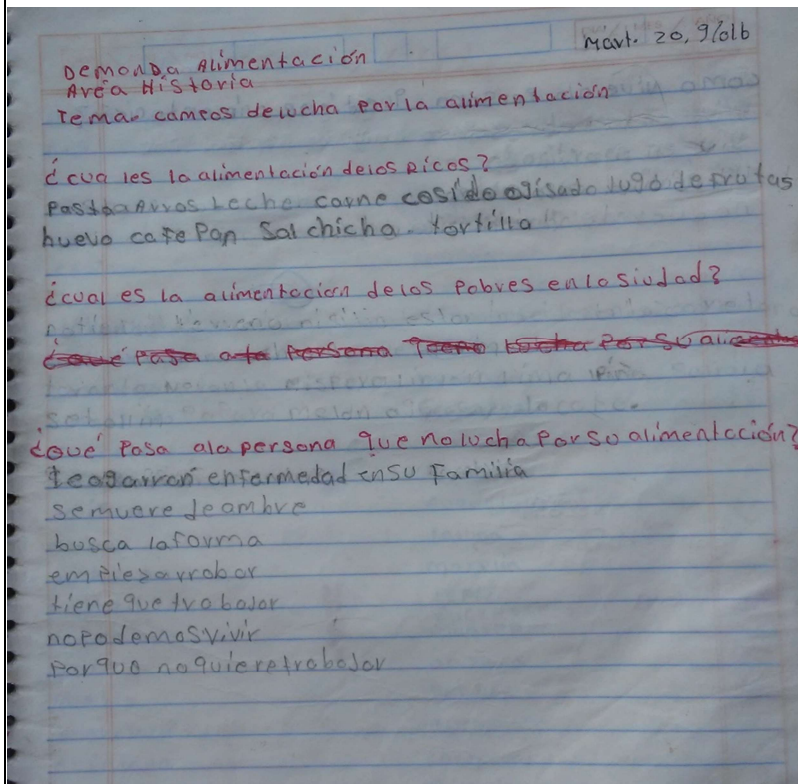 Mart. 20, 9/016
Demanda Alimentación
Area Historia
Tema. campos delucha por la alimentación
¿cua les la alimentación delos Ricos?
Pasta Arros Leche carne cosido ogisado Jugo de frutas
huevo cafe Pan Salchicha. tortilla
¿cual es la alimentacion delos Pobres enlo siudad?
¿Qué Pasa ala persona que nolucha Por su alimentación?
teagarran enfermedad en su Familia
semuere deambre
busca laforma
empiesa rrobar
tiene que trabajar
nopodemos vivir
Porque noquieretrabajar